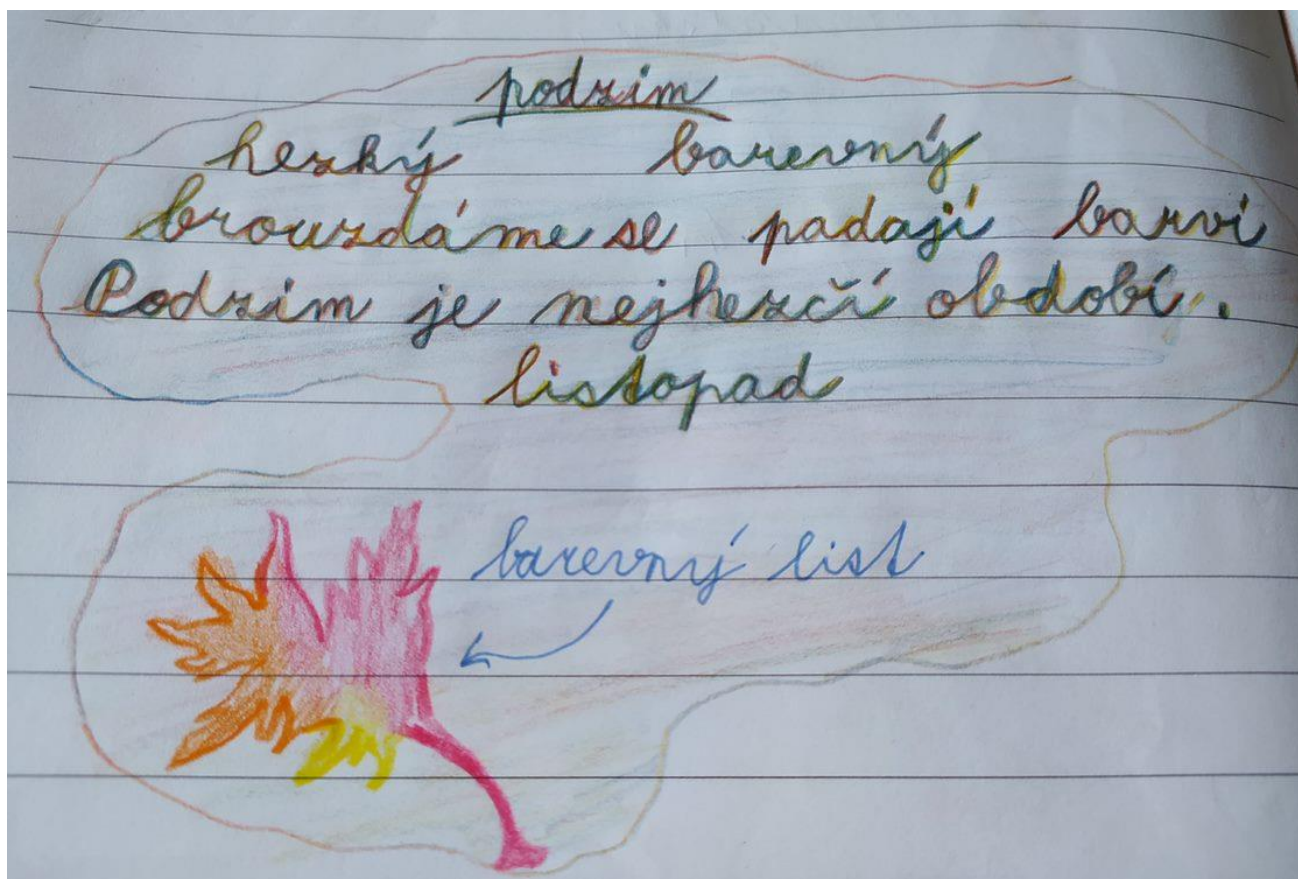 podzim
hezký barevný
brouzdáme se padají barví
Podzim je nejhezčí období.
listopad
barevný list